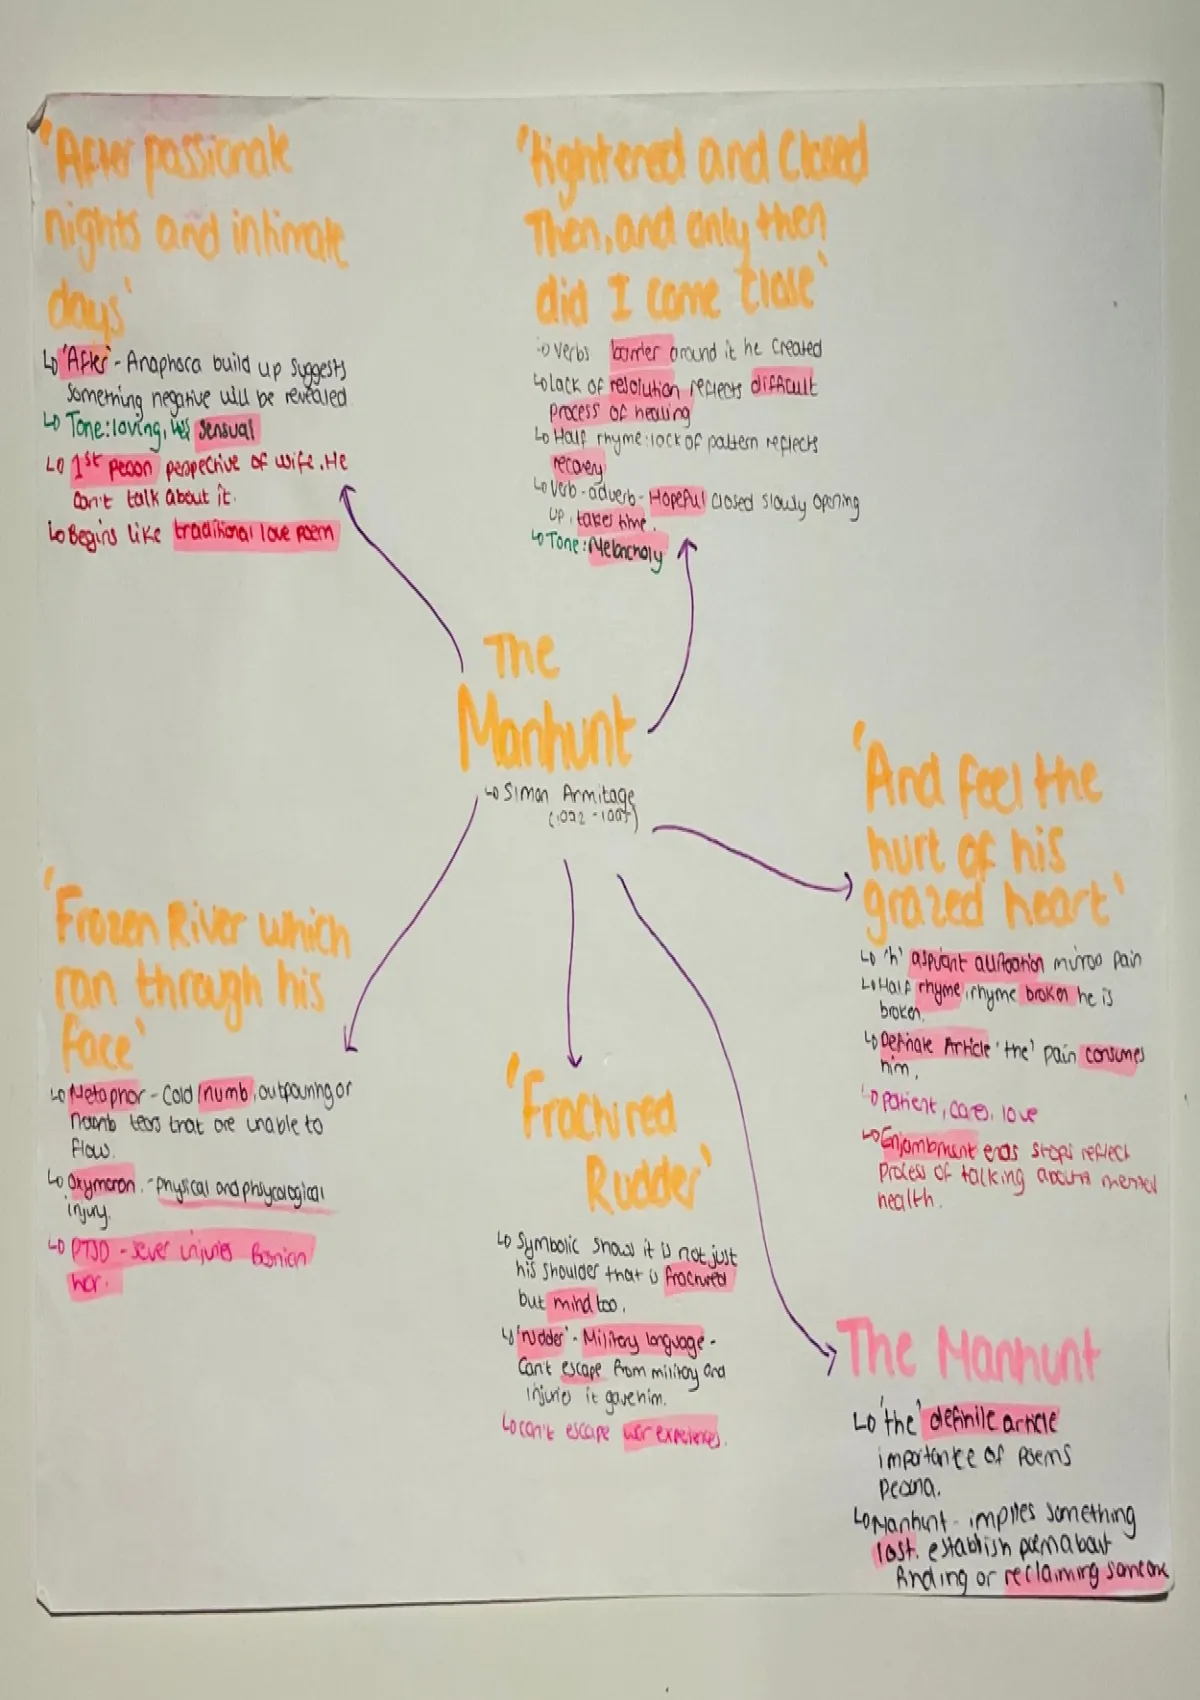 'After passionate
nights and intimate
days'
↳ 'After' - Anaphora build up suggests
something negative will be revealed
↳ Tone: loving, sensual
↳ 1st person perspective of wife. He
can't talk about it.
↳ Begins like traditional love poem
'tightened and Closed
Then, and only then
did I come close'
Verbs barrier around it he created
↳ lack of resolution reflects difficult
process of healing
↳ Half rhyme: lack of pattern reflects
recovery
↳ Verb-adverb - Hopeful closed slowly opening
up, takes time.
↳ Tone: Melancholy
The
Manhunt
↳ Simon Armitage
'And feel the
hurt of his
grazed heart'
↳ 'h' alliteration mirros pain
↳ Half rhyme, rhyme broken he is
broken.
↳ Definate Article 'the' pain consumes
him,
patient, care, love
↳ Enjambment ends stops reflect
process of talking about mental
health.
'Frozen River which
ran through his
face'
↳ Metaphor - Cold/numb, outpouring or
tears that are unable to
flow.
↳ Oxymoron. - physical and
injury.
↳ PTSD - sever injuries Bosnian
war.
'Fractured
Rudder'
↳ Symbolic shows it is not just
his shoulder that is fractured
but mind too.
↳ 'rudder' - Military language -
Can't escape from military and
injuries it gave him.
↳ can't escape war experiences.
The Manhunt
↳ 'the' definile article
importance of poems
↳ Manhunt - implies something
lost. establish poem about
finding or reclaiming someone